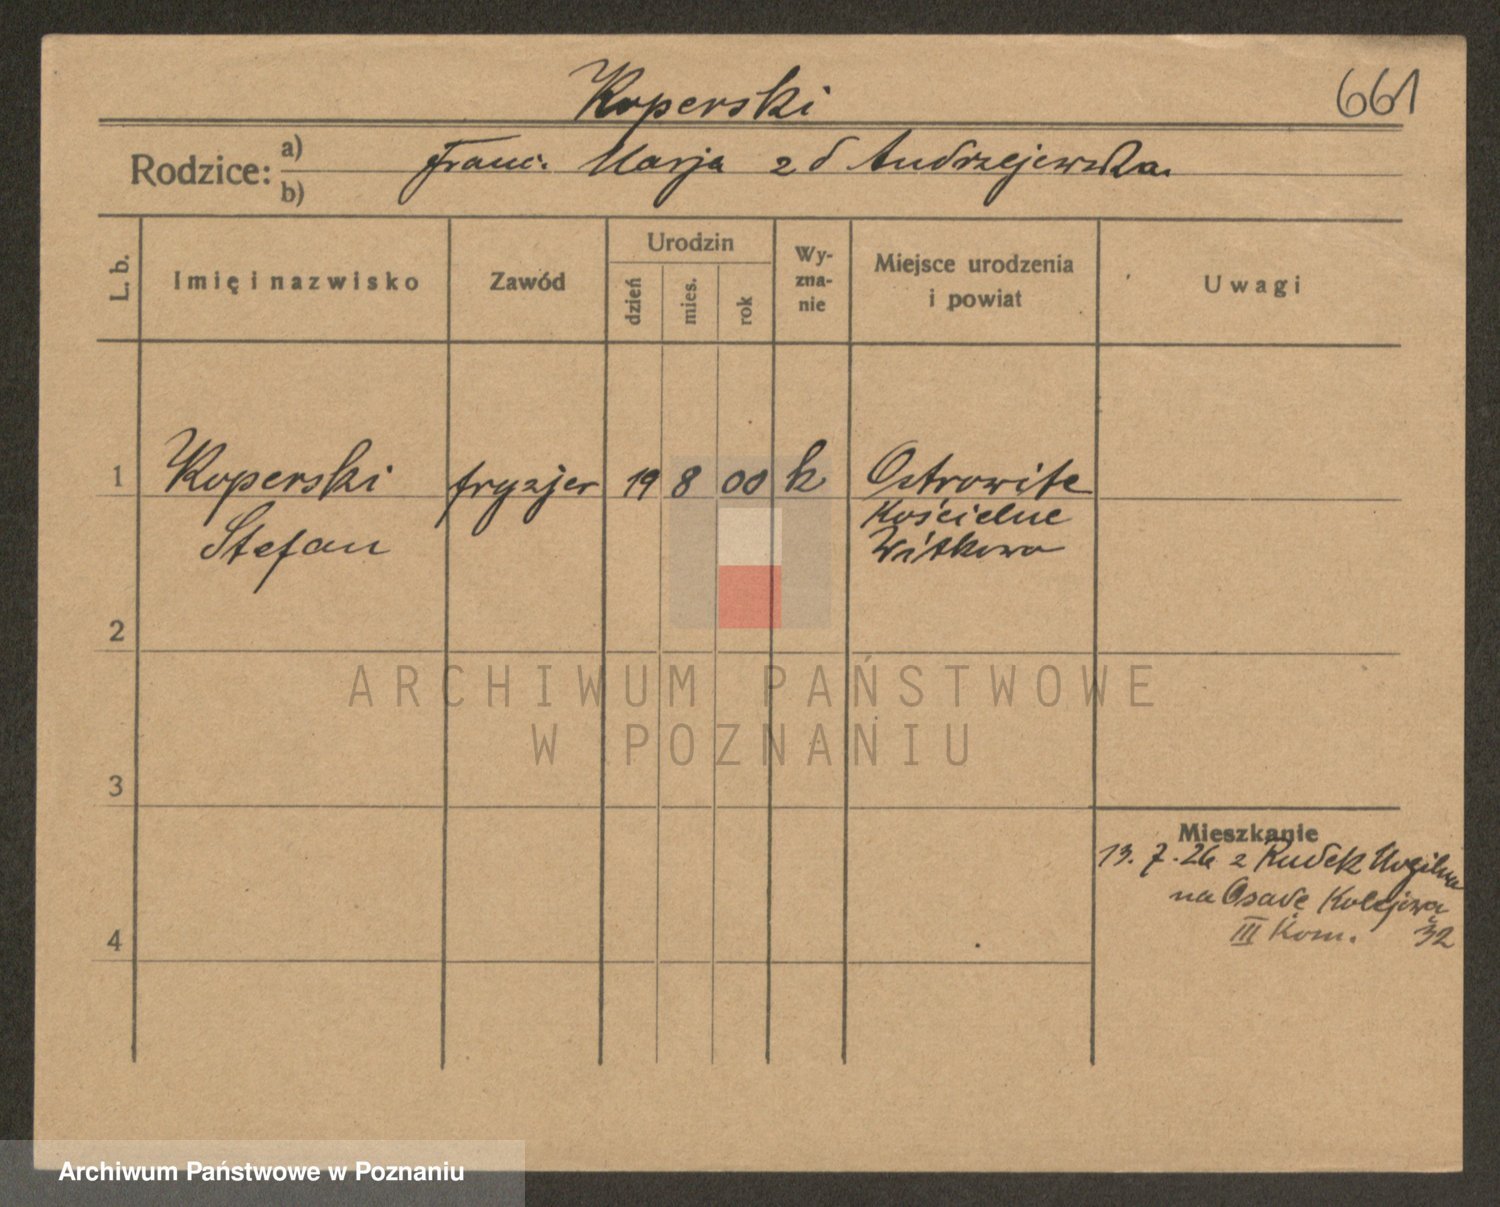 Koperski
661
Rodzice: a) b)
Franc. Marja z d Andrzejewska.
L. b.
Imię i nazwisko
Zawód
Urodzin
dzień
mies.
rok
Wy-
zna-
nie
Miejsce urodzenia
i powiat
Uwagi
1
Koperski
Stefan
fryzjer
19
8
00
k
Ostrowite
Kościelne
Witkowo
2
ARCHIWUM PAŃSTWOWE
W POZNANIU
3
Mieszkanie
13. 7. 26 z Rudek
na Osadę Kolejową
III Kom. 32
4
Archiwum Państwowe w Poznaniu